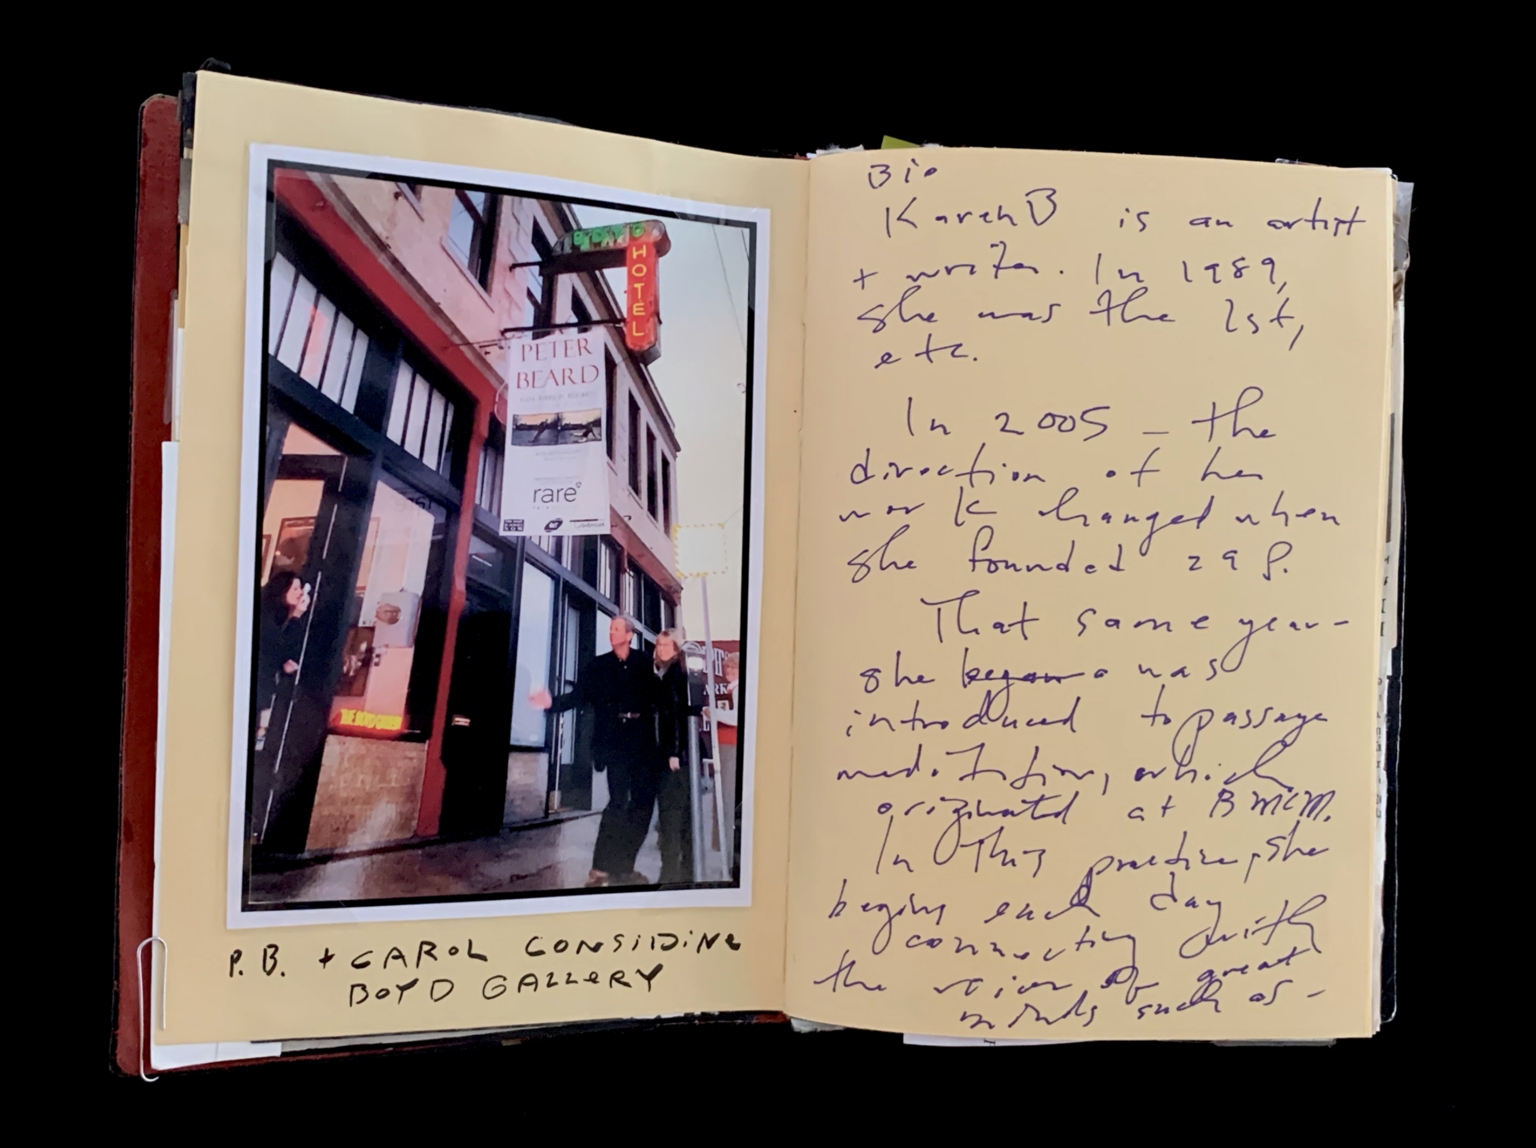 BOYD
HOTEL
PETER
BEARD
rare
P.B. + CAROL CONSIIDINE
BOYD GALLERY
Bio
Karen B is an artist
+ writer. In 1989,
she was the 1st,
etc.
In 2005 - the
direction of her
work changed when
she founded 29p.
That same year-
she began was
introduced to passage
meditation, which
originated at BMCM.
In this practice, she
begins each day
connecting with
the voices of great
minds such as -